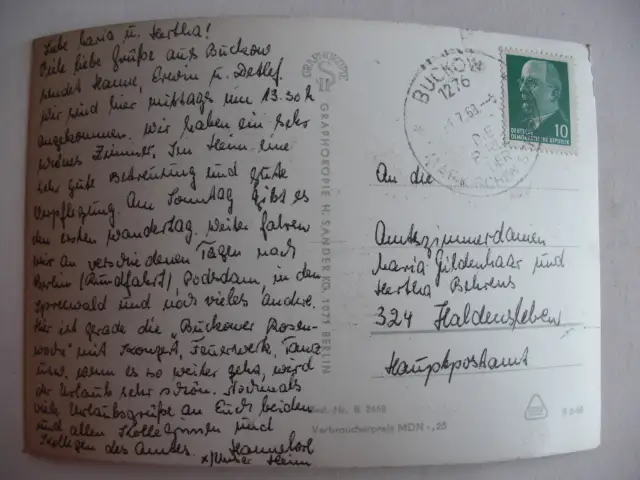 Liebe Maria u. Hertha!
Viele liebe Grüße aus Buckow
sendet Hanne, Erwin u. Detlef.
Wir sind hier mittags um 13.30 h
angekommen. Wir haben ein sehr
schönes Zimmer. Im Heim eine
sehr gute Betreuung und gute
Verpflegung. Am Sonntag gibt es
den ersten Wandertag. Weiter fahren
wir an verschiedenen Tagen nach
Berlin (Rundfahrt), Podsdam, in den
Spreewald und noch vieles andere.
Hier ist gerade die "Buckower Rosen-
woche" mit Konzert, Feuerwerk, Tanz
usw. wenn es so weiter geht, wird
der Urlaub sehr schön. Nochmals
viele Urlaubsgrüße an Euch beiden
und allen Kolleginnen und
Kollegen des Amtes.
x) Unser Heim
GRAPHOKOPIE H. SANDER KG, 1071 BERLIN
BUCKOW
1276
DEUTSCHE
DEMOKRATISCHE REPUBLIK
10
An die
Amtszimmerdamen
Maria Gildenhaar und
Hertha Behrens
324 Haldensleben
Hauptpostamt
Verbraucherpreis MDN -,25